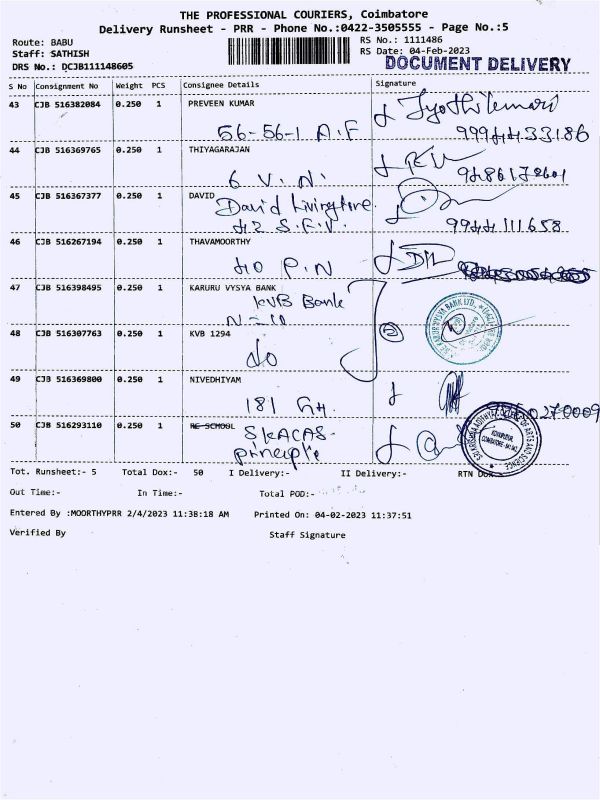 THE PROFESSIONAL COURIERS, Coimbatore
Delivery Runsheet - PRR - Phone No.:0422-3505555 - Page No.:5
Route: BABU
RS No.: 1111486
Staff: SATHISH
RS Date: 04-Feb-2023
DRS No.: DCJB111148605
DOCUMENT DELIVERY
S No Consignment No Weight PCS Consignee Details Signature
43 CJB 516382084 0.250 1 PREVEEN KUMAR
Jyothilemari
56-56-1 A.F
9994433186
44 CJB 516369765 0.250 1 THIYAGARAJAN
6 V.N.
45 CJB 516367377 0.250 1 DAVID
David Livingtone.
42 S.F.V.
9944111658
46 CJB 516267194 0.250 1 THAVAMOORTHY
40 P.N
47 CJB 516398495 0.250 1 KARURU VYSYA BANK
KVB Bank
48 CJB 516307763 0.250 1 KVB 1294
do
49 CJB 516369800 0.250 1 NIVEDHIYAM
181 GH.
50 CJB 516293110 0.250 1 RE SCHOOL
SKACAS-
principle
Tot. Runsheet:- 5 Total Dox:- 50 I Delivery:- II Delivery:- RTN Dox
Out Time:- In Time:- Total POD:-
Entered By :MOORTHYPRR 2/4/2023 11:38:18 AM Printed On: 04-02-2023 11:37:51
Verified By Staff Signature